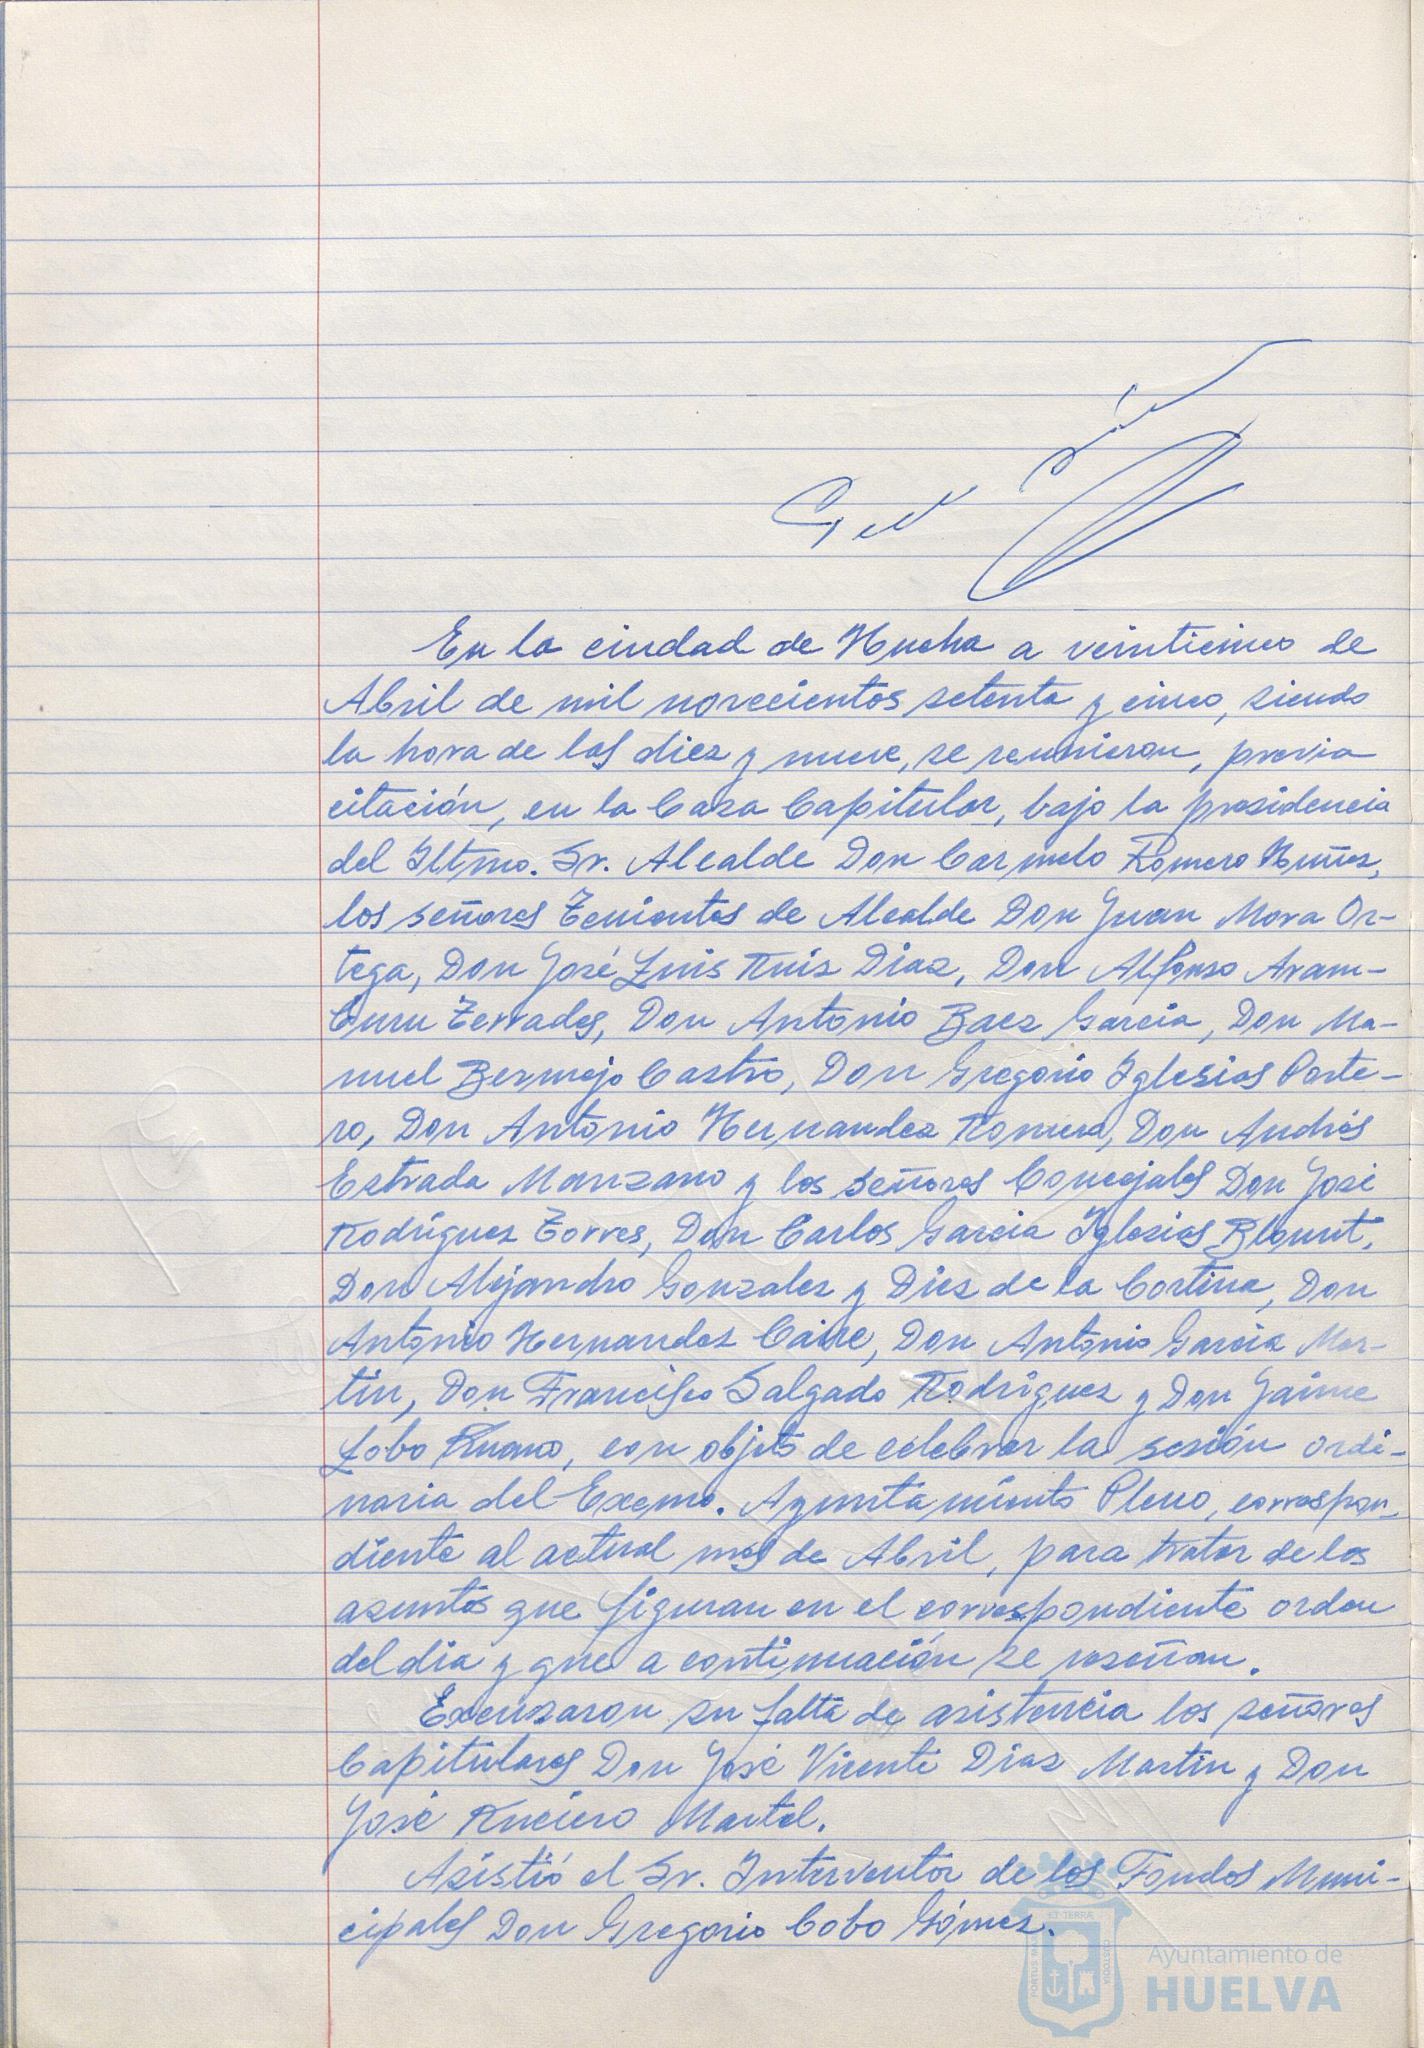 En la ciudad de Huelva a veinticinco de
Abril de mil novecientos setenta y cinco, siendo
la hora de las diez y nueve, se reunieron, previa
citación, en la Casa Capitular, bajo la presidencia
del Iltmo. Sr. Alcalde Don Carmelo Romero Núñez,
los señores Tenientes de Alcalde Don Juan Mora Or-
tega, Don José Luis Ruiz Diaz, Don Alfonso Aram-
buru Terrades, Don Antonio Baez Garcia, Don Ma-
nuel Bermejo Castro, Don Gregorio Iglesias Porte-
ro, Don Antonio Hernandez Romero, Don Andrés
Estrada Manzano y los señores Concejales Don José
Rodríguez Torres, Don Carlos Garcia Iglesias Blount,
Don Alejandro Gonzalez y Diez de la Cortina, Don
Antonio Hernandez Caire, Don Antonio Garcia Mar-
tin, Don Francisco Salgado Rodríguez y Don Jaime
Lobo Ruano, con objeto de celebrar la sesión ordi-
naria del Excmo. Ayuntamiento Pleno, correspon-
diente al actual mes de Abril, para tratar de los
asuntos que figuran en el correspondiente orden
del dia y que a continuación se reseñan.
Excusaron su falta de asistencia los señores
Capitulares Don José Vicente Diaz Martin y Don
José Ruciero Martel.
Asistió el Sr. Interventor de los Fondos Muni-
cipales Don Gregorio Cobo Gómez.
PORTUS MARIS ET TERRAE CUSTODIA
Ayuntamiento de
HUELVA